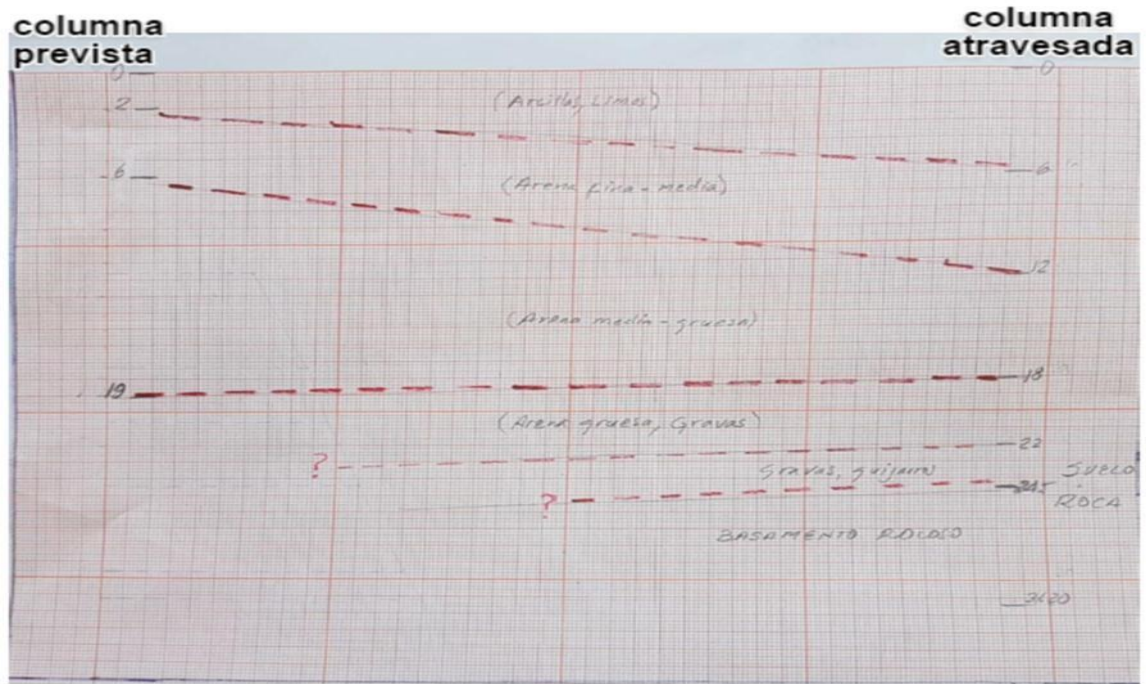 columna prevista
columna atravesada
0
0
2
(Arcillas, Limos)
6
6
(Arena fina-media)
12
(Arena media-gruesa)
19
18
(Arena gruesa, Gravas)
22
?
Gravas, guijarros
SUELO
?
ROCA
BASAMENTO ROCOSO